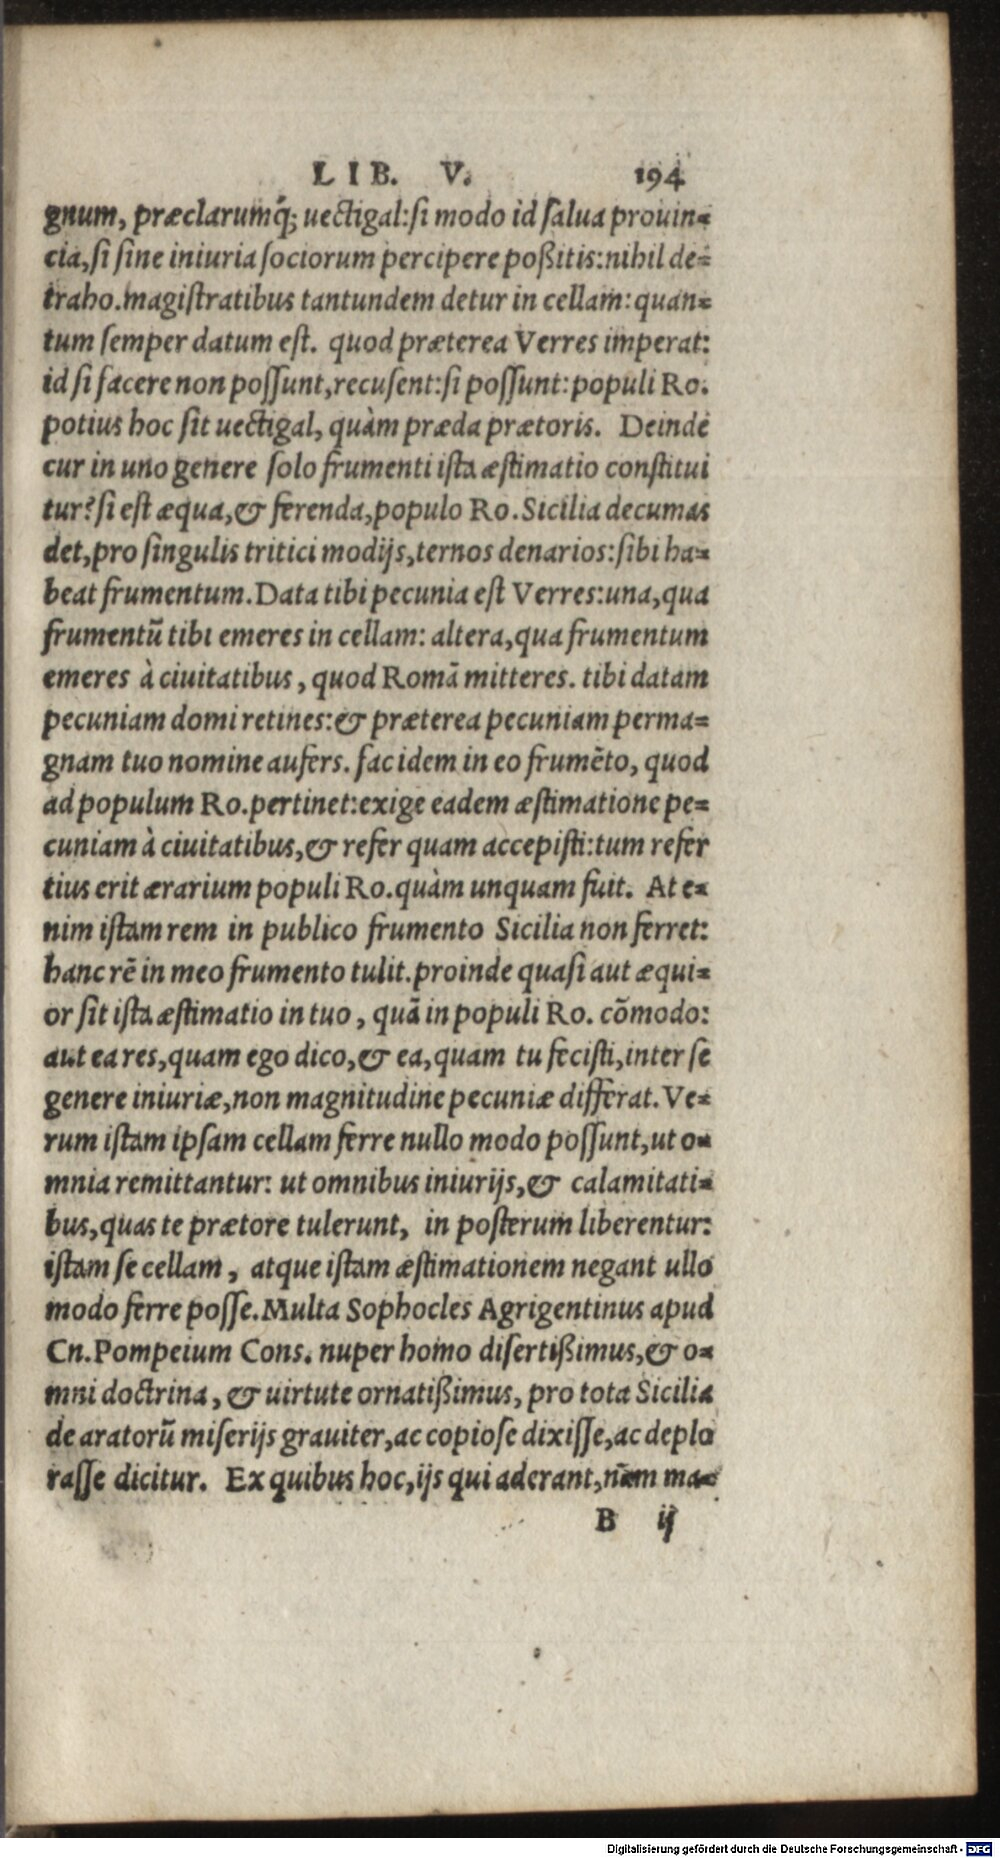 LIB. V. 194
gnum, præclarumq́; uectigal: si modo id salua prouin=
cia, si sine iniuria sociorum percipere poßitis: nihil de=
traho. magistratibus tantundem detur in cellam: quan=
tum semper datum est. quod præterea Verres imperat:
id si facere non possunt, recusent: si possunt: populi Ro.
potius hoc sit uectigal, quàm præda prætoris. Deinde
cur in uno genere solo frumenti ista æstimatio constitui
tur? si est æqua, & ferenda, populo Ro. Sicilia decumas
det, pro singulis tritici modijs, ternos denarios: sibi ha=
beat frumentum. Data tibi pecunia est Verres: una, qua
frumentū tibi emeres in cellam: altera, qua frumentum
emeres à ciuitatibus, quod Romā mitteres. tibi datam
pecuniam domi retines: & præterea pecuniam perma=
gnam tuo nomine aufers. fac idem in eo frumēto, quod
ad populum Ro. pertinet: exige eadem æstimatione pe=
cuniam à ciuitatibus, & refer quam accepisti: tum refer
tius erit ærarium populi Ro. quàm unquam fuit. At e=
nim istam rem in publico frumento Sicilia non ferret:
hanc rē in meo frumento tulit. proinde quasi aut æqui=
or sit ista æstimatio in tuo, quā in populi Ro. cōmodo:
aut ea res, quam ego dico, & ea, quam tu fecisti, inter se
genere iniuriæ, non magnitudine pecuniæ differat. Ve=
rum istam ipsam cellam ferre nullo modo possunt, ut o=
mnia remittantur: ut omnibus iniurijs, & calamitati=
bus, quas te prætore tulerunt, in posterum liberentur:
istam se cellam, atque istam æstimationem negant ullo
modo ferre posse. Multa Sophocles Agrigentinus apud
Cn. Pompeium Cons. nuper homo disertißimus, & o=
mni doctrina, & uirtute ornatißimus, pro tota Sicilia
de aratorū miserijs grauiter, ac copiose dixisse, ac deplo
rasse dicitur. Ex quibus hoc, ijs qui aderant, nam ma=
B ij
Digitalisierung gefördert durch die Deutsche Forschungsgemeinschaft - DFG